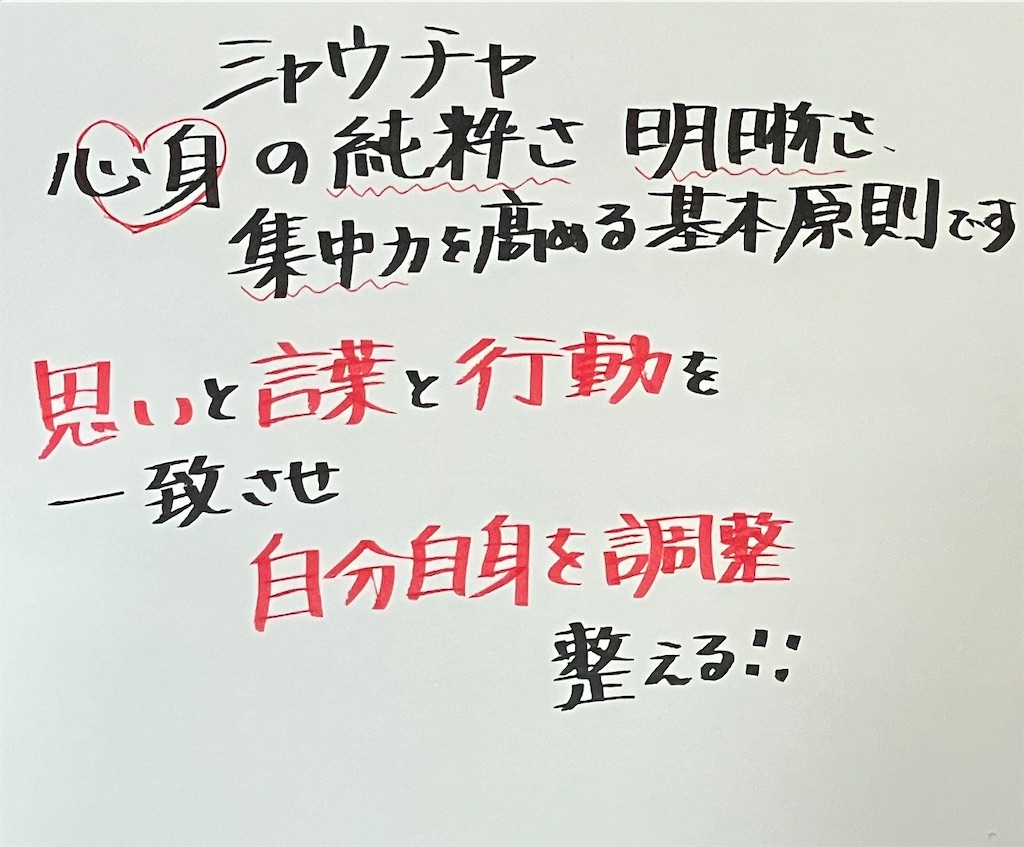 シャウチャ
心身の純粋さ 明晰さ、
集中力を高める基本原則です
思いと言葉と行動を
一致させ
自分自身を調整
整える::